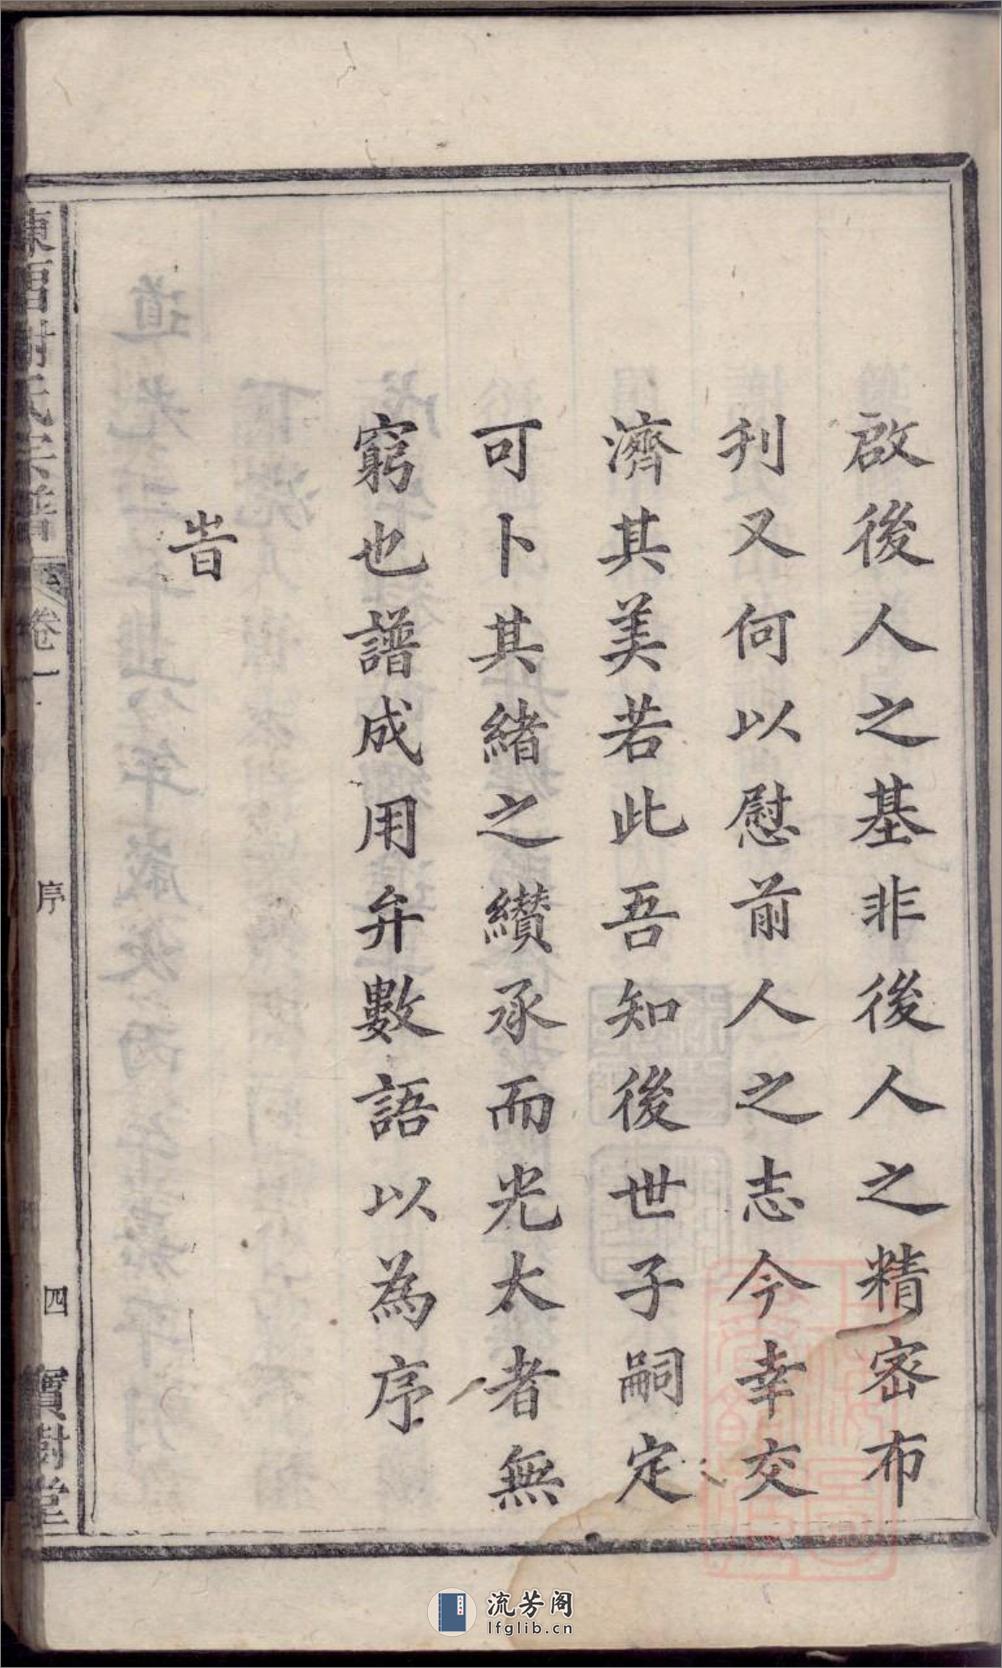 啟後人之基非後人之精密布
利又何以慰前人之志今幸交
濟其美若此吾知後世子嗣定
可卜其緒之纘承而光大者無
窮也譜成用弁數語以為序
旹
氏宗譜
卷一
序
四
寶樹堂
流芳阁
lfglib.cn